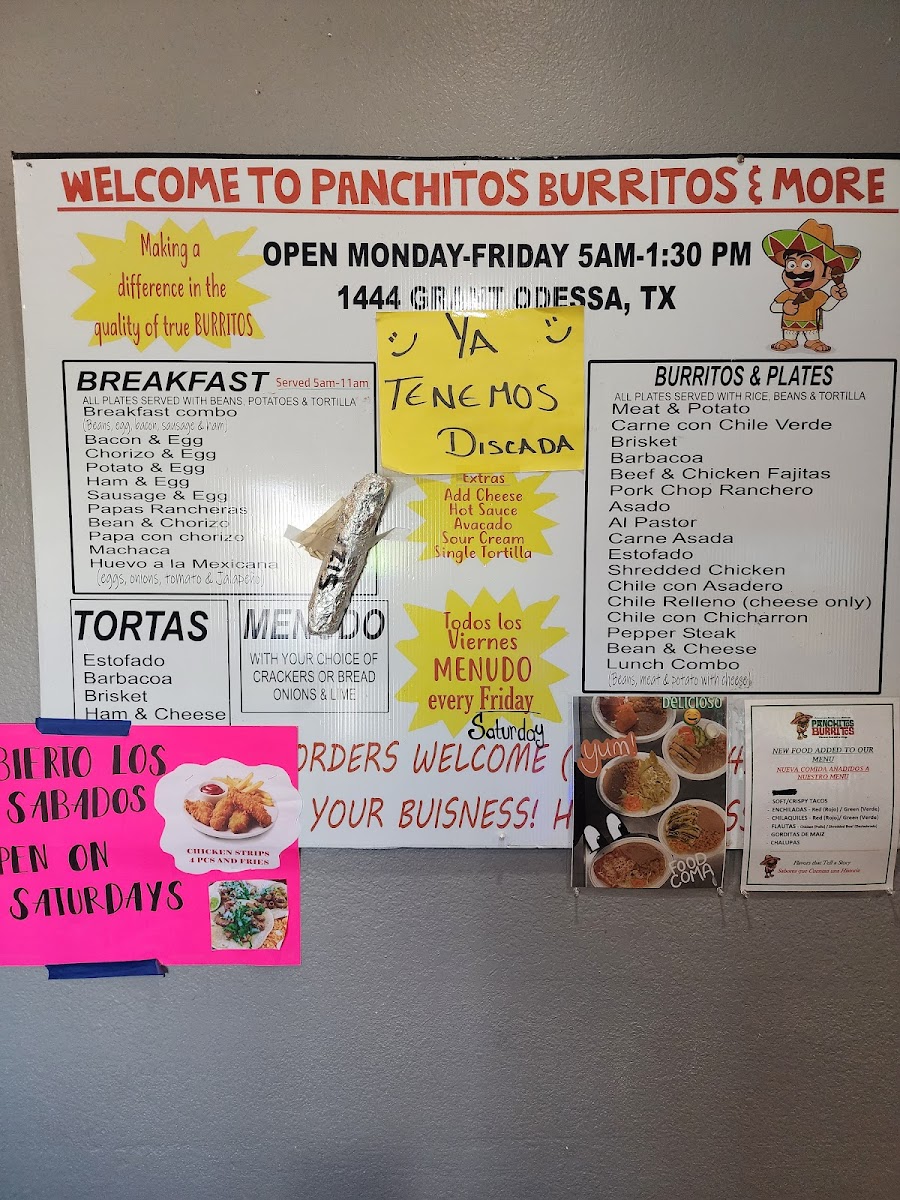 WELCOME TO PANCHITOS BURRITOS & MORE
Making a
difference in the
quality of true BURRITOS
OPEN MONDAY-FRIDAY 5AM-1:30 PM
1444 GRANT ODESSA, TX
YA
TENEMOS
DISCADA
BREAKFAST Served 5am-11am
ALL PLATES SERVED WITH BEANS, POTATOES & TORTILLA
Breakfast combo
(Beans, egg, bacon, sausage & ham)
Bacon & Egg
Chorizo & Egg
Potato & Egg
Ham & Egg
Sausage & Egg
Papas Rancheras
Bean & Chorizo
Papa con chorizo
Machaca
Huevo a la Mexicana
(eggs, onions, tomato & Jalapeño)
Extras
Add Cheese
Hot Sauce
Avacado
Sour Cream
Single Tortilla
BURRITOS & PLATES
ALL PLATES SERVED WITH RICE, BEANS & TORTILLA
Meat & Potato
Carne con Chile Verde
Brisket
Barbacoa
Beef & Chicken Fajitas
Pork Chop Ranchero
Asado
Al Pastor
Carne Asada
Estofado
Shredded Chicken
Chile con Asadero
Chile Relleno (cheese only)
Chile con Chicharron
Pepper Steak
Bean & Cheese
Lunch Combo
(Beans, meat & potato with cheese)
TORTAS
Estofado
Barbacoa
Brisket
Ham & Cheese
MENUDO
WITH YOUR CHOICE OF
CRACKERS OR BREAD
ONIONS & LIME
Todos los
Viernes
MENUDO
every Friday
Saturday
ORDERS WELCOME (
YOUR BUISNESS!
BIERTO LOS
SABADOS
PEN ON
SATURDAYS
CHICKEN STRIPS
4 PCS AND FRIES
DELICIOSO
Yum!
FOOD
COMA
PANCHITOS
BURRITOS
NEW FOOD ADDED TO OUR
MENU
NUEVA COMIDA AÑADIDOS A
NUESTRO MENU
SOFT/CRISPY TACOS
ENCHILADAS - Red (Rojo) / Green (Verde)
CHILAQUILES - Red (Rojo) / Green (Verde)
FLAUTAS - Chicken (Pollo) / Shredded Beef (Deshebrada)
GORDITAS DE MAIZ
CHALUPAS
Flavors that Tell a Story
Sabores que Cuentan una Historia